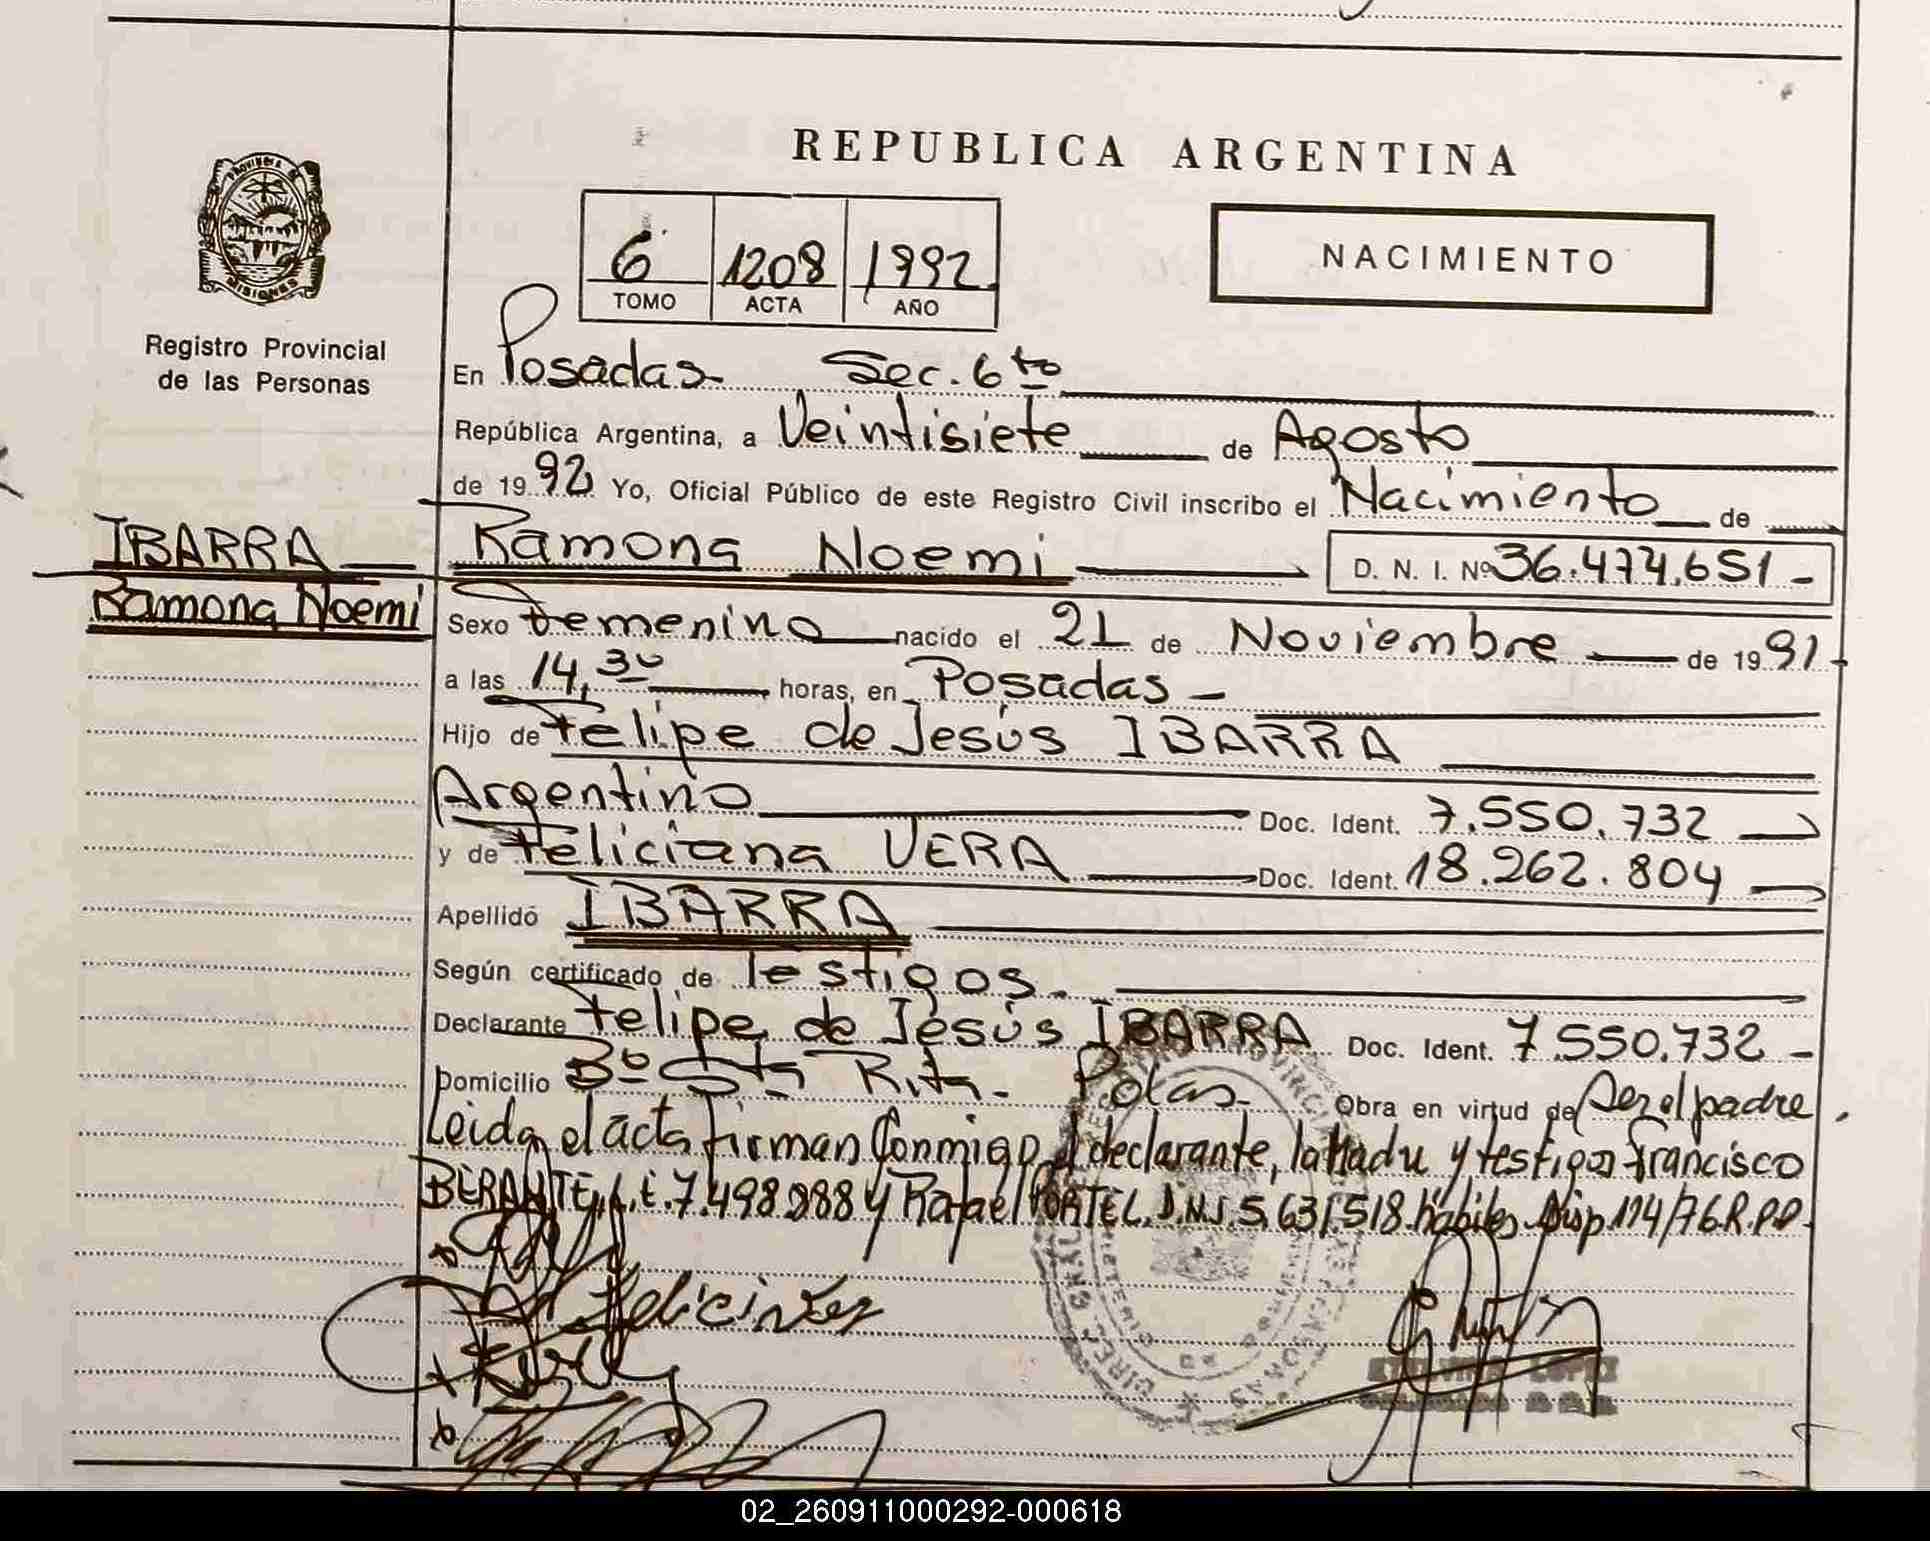 REPUBLICA ARGENTINA
PROVINCIA DE
MISIONES
Registro Provincial
de las Personas
6 1208 1992
TOMO ACTA AÑO
NACIMIENTO
En Posadas Sec. 6to
República Argentina, a Veintisiete de Agosto
de 1992 Yo, Oficial Público de este Registro Civil inscribo el Nacimiento de
IBARRA
Ramona Noemi
Ramona Noemi D. N. I. Nº 36.474.651-
Sexo Femenino nacido el 21 de Noviembre de 1991
a las 14,30 horas, en Posadas-
Hijo de Felipe de Jesús IBARRA
Argentino Doc. Ident. 7.550.732
y de Feliciana VERA Doc. Ident. 18.262.804
Apellido IBARRA
Según certificado de Testigos.
Declarante Felipe de Jesús IBARRA Doc. Ident. 7.550.732-
Domicilio Bº Sta Rita- Pdas- Obra en virtud de Ser el padre.
Leida el acta firman Conmigo el declarante, la Madre y testigos Francisco
BERANTE, L.E. 7.498.988 y Rafael PORTEL. D.N.I. 5.631.518. hábiles. Disp. 114/76.R.P.P.
02_260911000292-000618